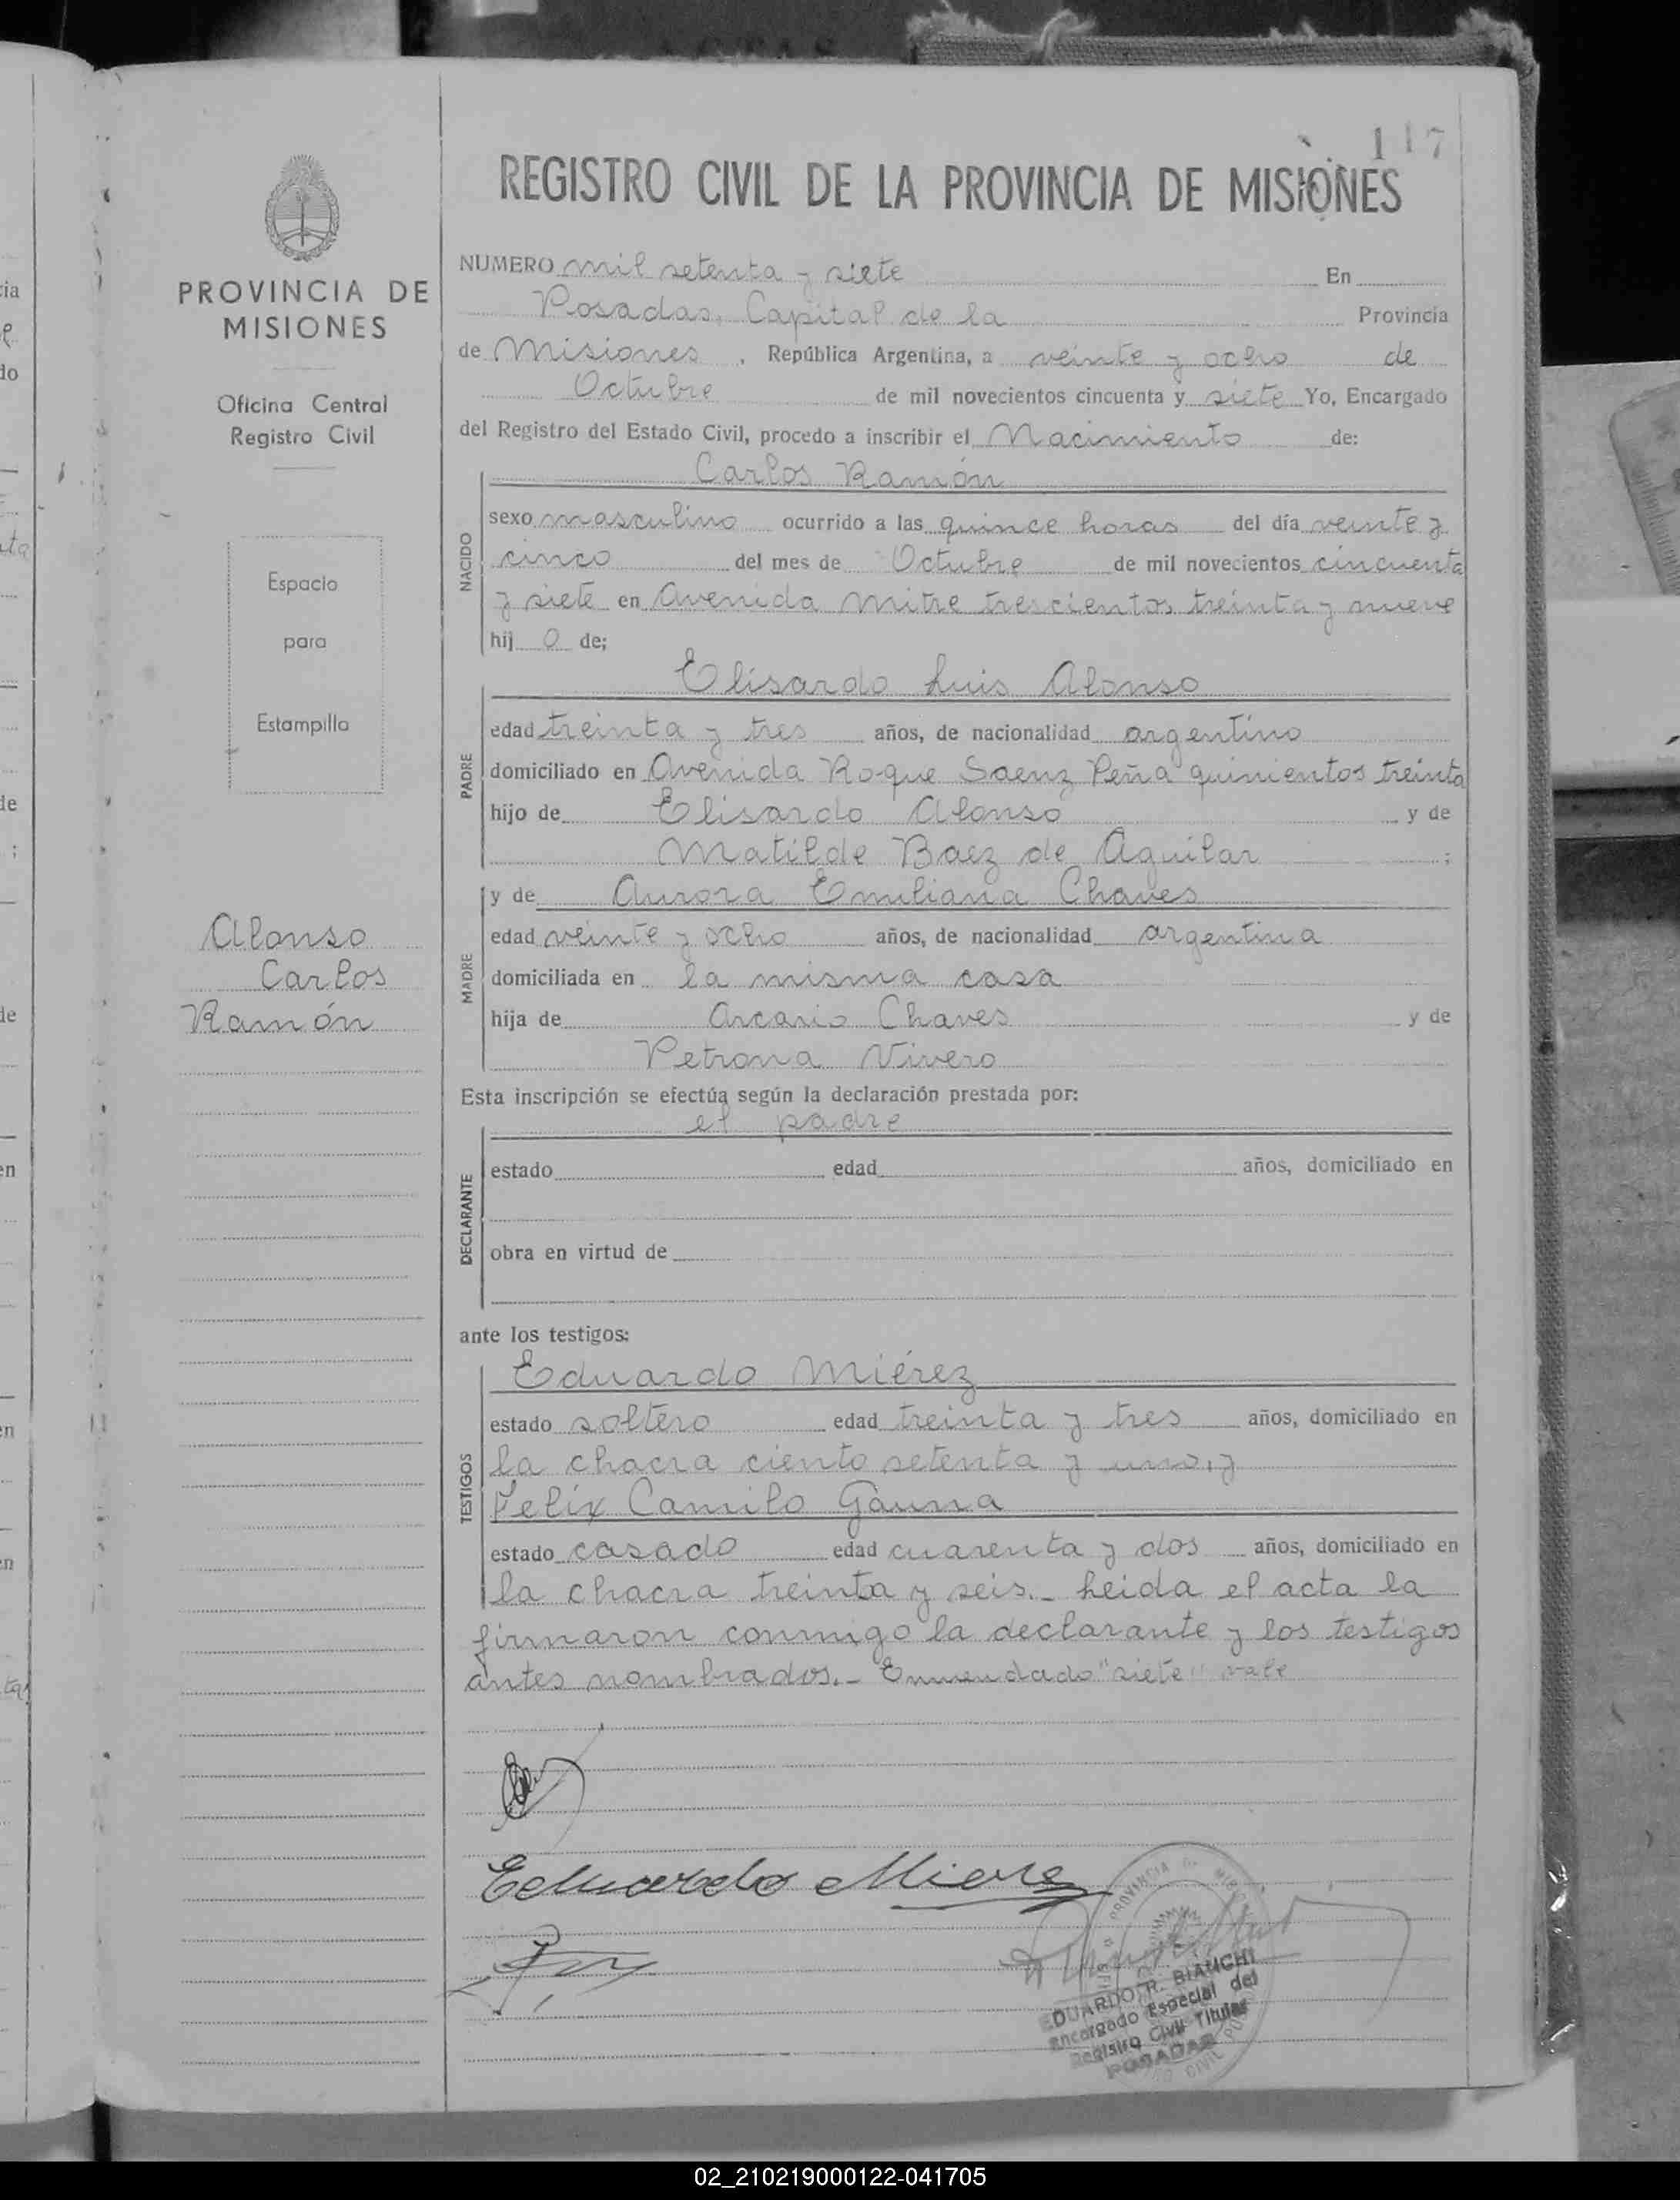 117
REGISTRO CIVIL DE LA PROVINCIA DE MISIONES
PROVINCIA DE
MISIONES
Oficina Central
Registro Civil
Espacio
para
Estampilla
Alonso
Carlos
Ramón
NUMERO mil setenta y siete En
Posadas, Capital de la Provincia
de Misiones, República Argentina, a veinte y ocho de
Octubre de mil novecientos cincuenta y siete Yo, Encargado
del Registro del Estado Civil, procedo a inscribir el Nacimiento de:
Carlos Ramón
NACIDO
sexo masculino ocurrido a las quince horas del día veinte y
cinco del mes de Octubre de mil novecientos cincuenta
y siete en Avenida Mitre trescientos treinta y nueve
hij o de;
PADRE
Elisardo Luis Alonso
edad treinta y tres años, de nacionalidad argentino
domiciliado en Avenida Roque Saenz Peña quinientos treinta
hijo de Elisardo Alonso y de
Matilde Baez de Aguilar ;
MADRE
y de Aurora Emiliana Chaves
edad veinte y ocho años, de nacionalidad argentina
domiciliada en la misma casa
hija de Arcario Chaves y de
Petrona Vivero
Esta inscripción se efectúa según la declaración prestada por:
el padre
DECLARANTE
estado edad años, domiciliado en
obra en virtud de
ante los testigos:
TESTIGOS
Eduardo Miérez
estado soltero edad treinta y tres años, domiciliado en
la chacra ciento setenta y uno, y
Felix Camilo Gauna
estado casado edad cuarenta y dos años, domiciliado en
la chacra treinta y seis._ Leida el acta la
firmaron conmigo la declarante y los testigos
antes nombrados._ Enmendado "siete" vale
Eduardo Mierez
PROVINCIA DE
EDUARDO R. BIANCHI
Encargado Especial del
Registro Civil Titular
POSADAS
02_210219000122-041705